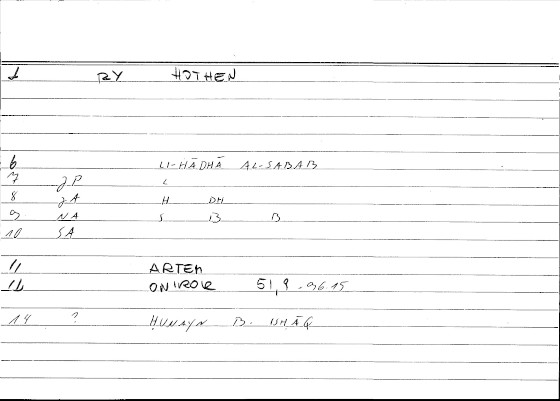 1 RY HOTHEN
6 LI-HĀDHĀ AL-SABAB
7 JP L
8 JA H DH
9 NA S B B
10 SA
11 ARTEM
12 ONIROK 51,9-96.15
14 ? ḤUNAYN B. ISḤĀQ